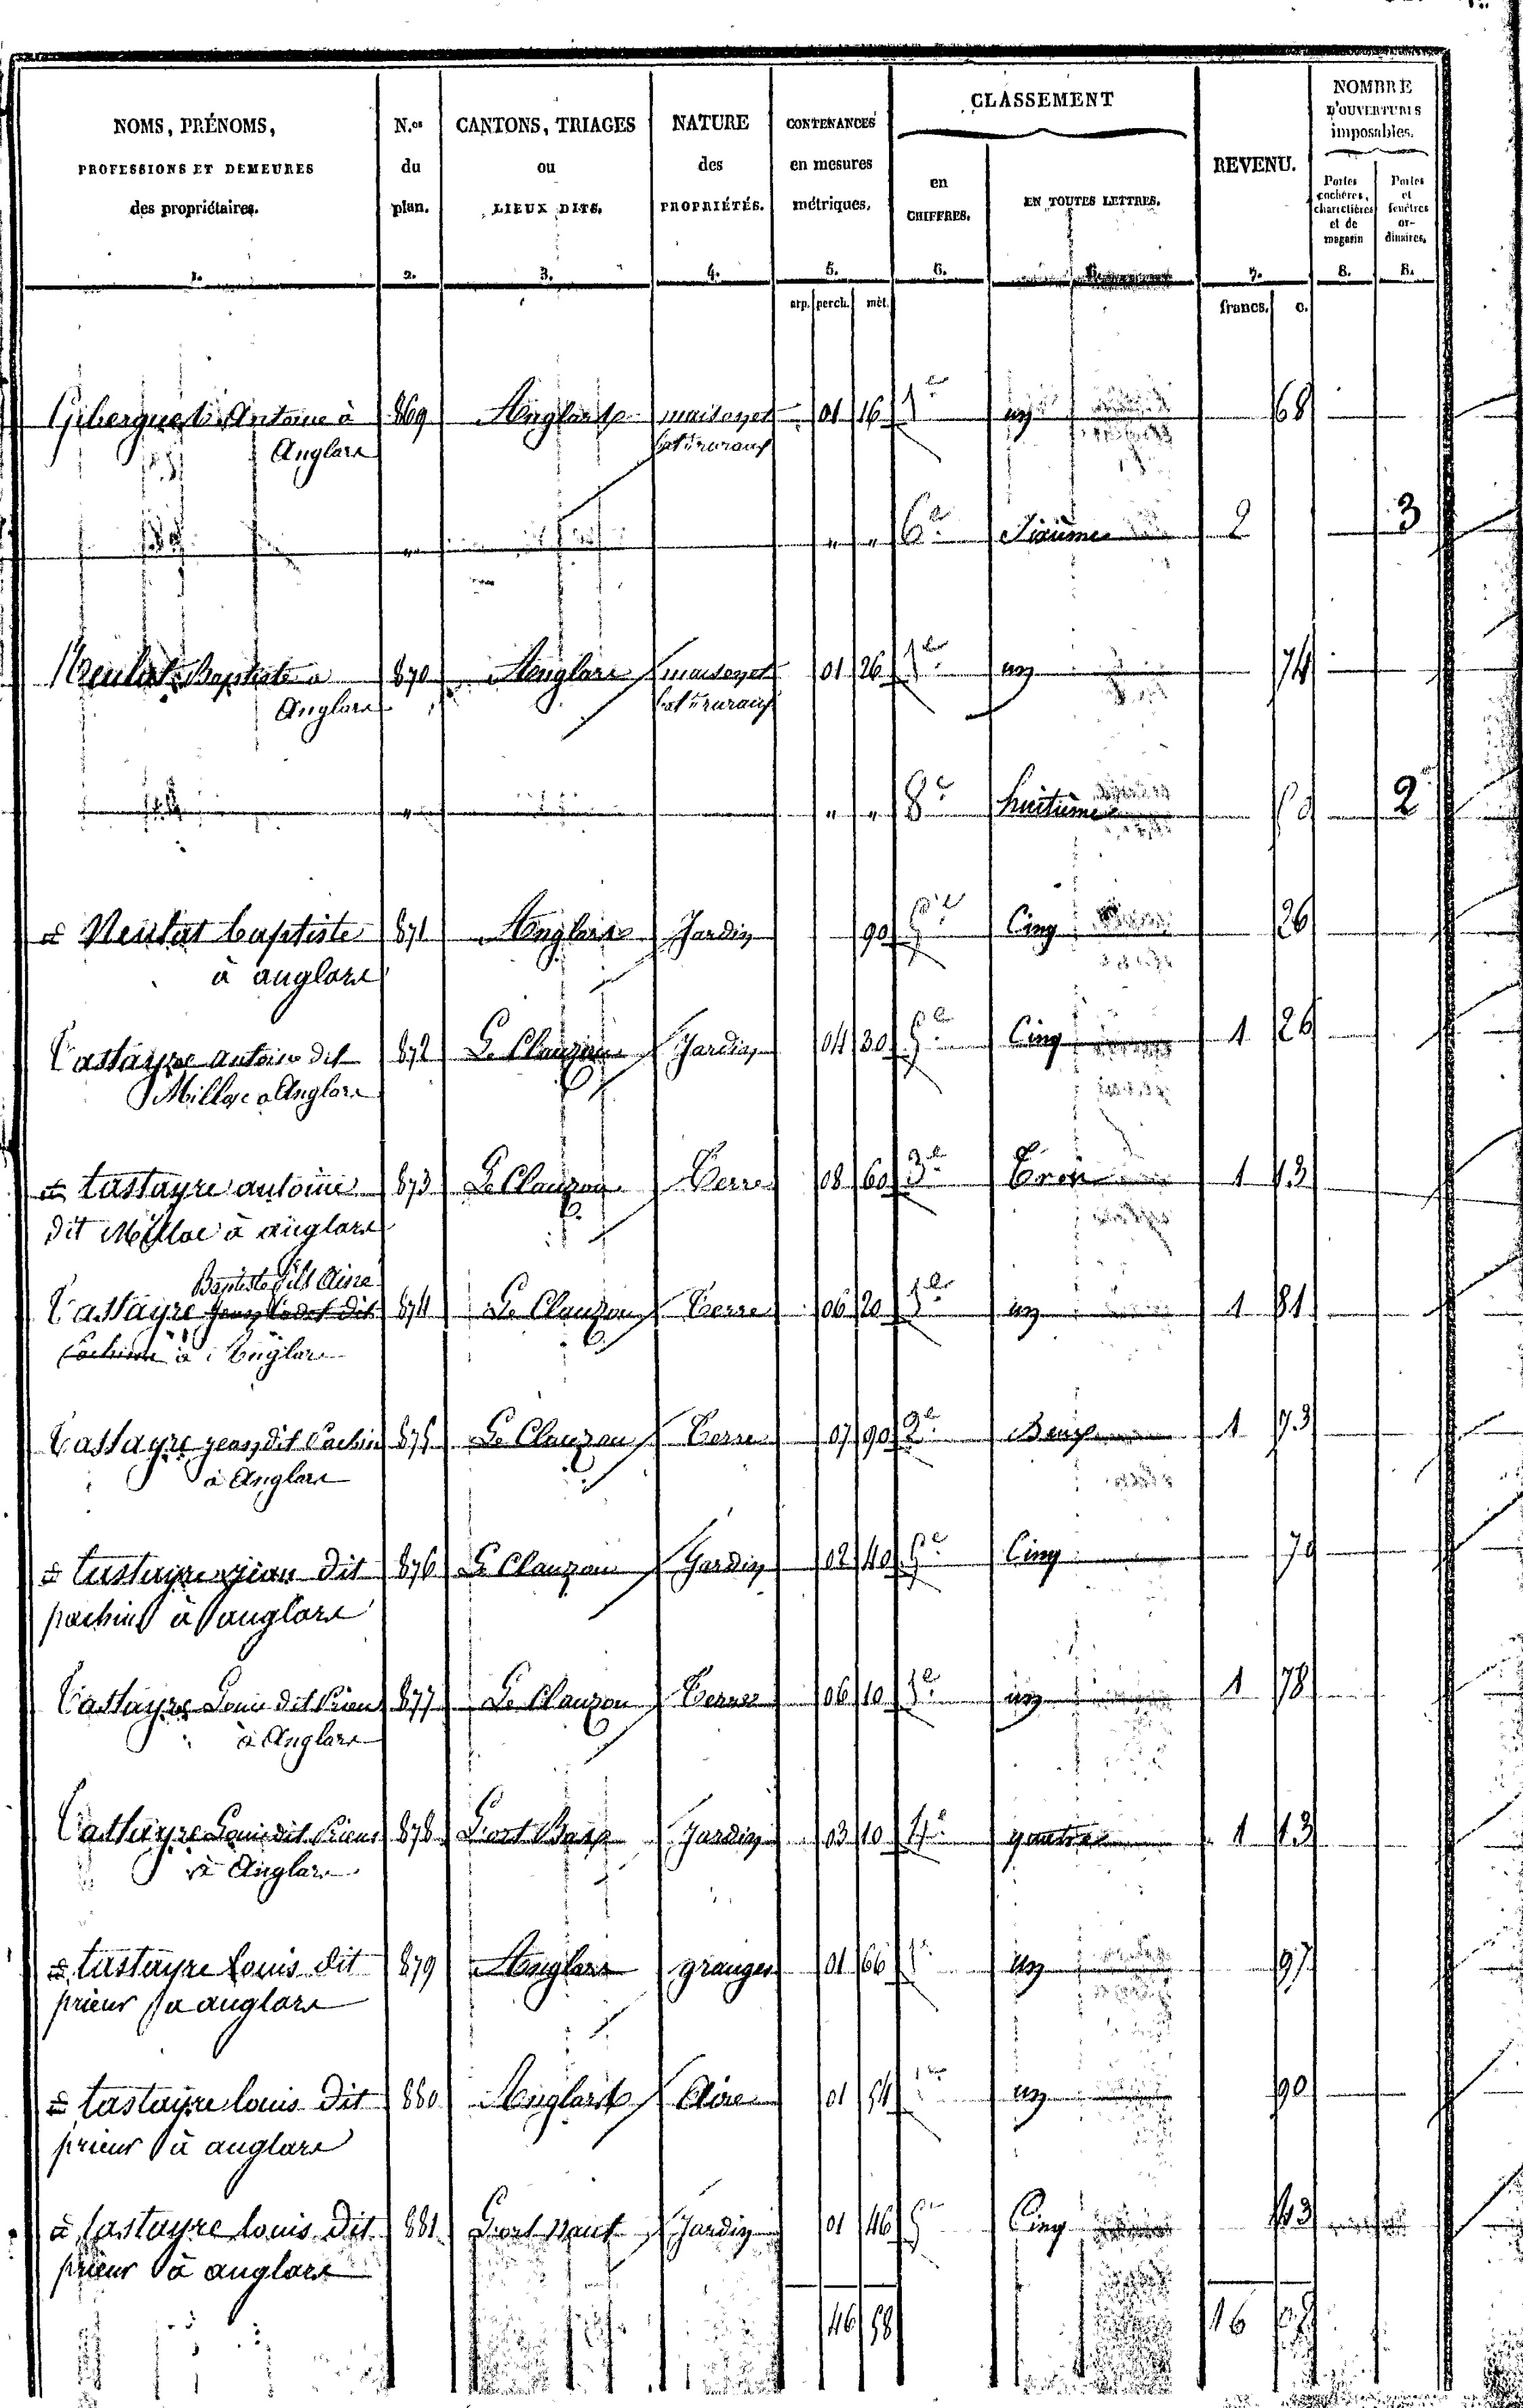 NOMS, PRÉNOMS, PROFESSIONS ET DEMEURES des propriétaires. 1.
N.os du plan. 2.
CANTONS, TRIAGES ou LIEUX DITS. 3.
NATURE des PROPRIÉTÉS. 4.
CONTENANCES en mesures métriques. 5.
CLASSEMENT
en CHIFFRES. 6.
EN TOUTES LETTRES.
REVENU. 7.
NOMBRE D'OUVERTURES imposables.
Portes cochères, charretières et de magasin 8.
Portes et fenêtres ordinaires. 8.
arp. perch. mèt. francs. c.
Antoine à 869 Anglars maison et 01 16 1re un 68
Anglars bat. ruraux
" " " 6e Sixième 2 3
Baptiste à 870 Anglars maison et 01 26 1re un 74
Anglars bat. ruraux
" " " 8e huitième 2
à Neulat baptiste 871 Anglars Jardin 90 5e Cinq 26
à anglars
Tastayre antoine dit 872 Le Clauzou Jardin 04 30 5e Cinq 1 26
à Anglars
à tastayre antoine 873 Le Clauzou Terre 08 60 3e Trois 1 13
dit à anglars
Baptiste fils Ainé
Tastayre Jean Cadet dit 874 Le Clauzou Terre 06 20 1re un 1 81
à Anglars
Tastayre jean dit 875 Le Clauzou Terre 07 90 2e Deux 1 73
à Anglars
à tastayre jean dit 876 Le Clauzou Jardin 02 40 5e Cinq 70
à anglars
Tastayre Louis dit Prieur 877 Le Clauzou Terre 06 10 1e un 1 78
à Anglars
Tastayre Louis dit Prieur 878 L'ort Bas Jardin 03 10 4e quatre 1 13
à Anglars
à tastayre louis dit 879 Anglars granges 01 66 1e un 97
prieur à anglars
à tastayre louis dit 880 Anglars Aire 01 54 1re un 90
prieur à anglars
à tastayre louis dit 881 L'ort haut Jardin 01 46 5e Cinq 43
prieur à anglars
46 58 16